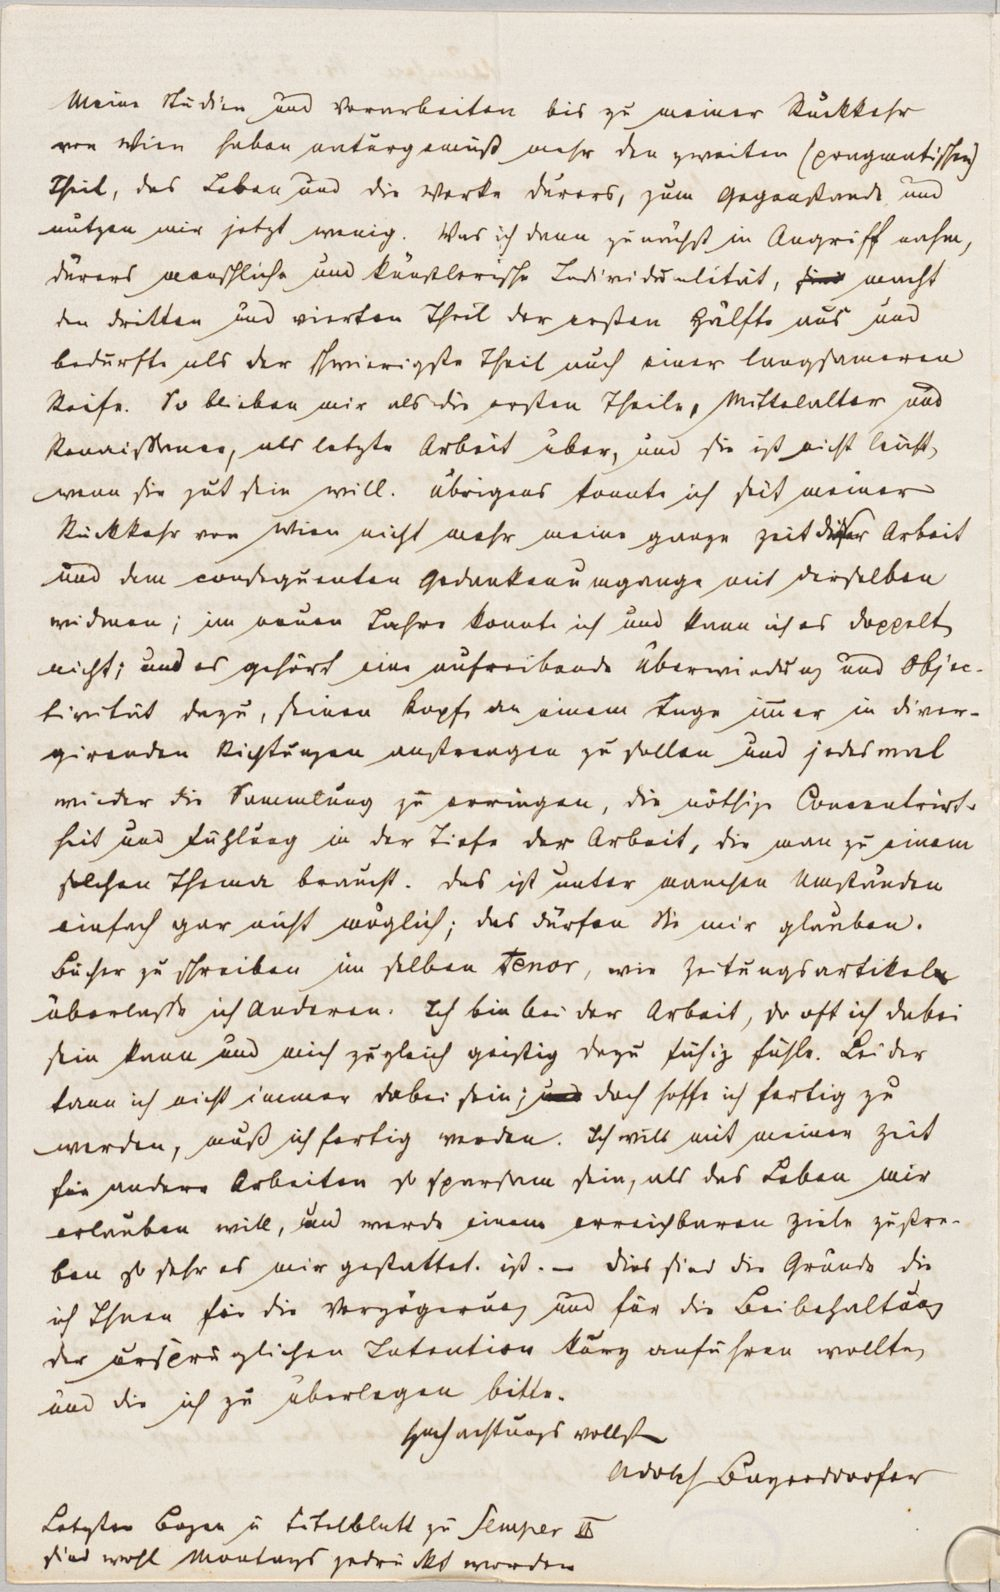 Meine Studien und Vorarbeiten bis zu meiner Rückkehr
von Wien haben naturgemäß mehr den zweiten (pragmatischen)
Theil, das Leben und die Werke Dürers, zum Gegenstande und
nutzen mir jetzt wenig. Was ich dann zunächst in Angriff nahm,
Dürers menschliche und künstlerische Individualität, macht
den dritten und vierten Theil der ersten Hälfte aus und
bedurfte als der schwierigste Theil auch einer langsameren
Reife. So blieben mir als die ersten Theile, Mittelalter und
Renaissance, als letzte Arbeit über, und sie ist nicht leicht,
wenn sie gut sein will. Übrigens konnte ich seit meiner
Rückkehr von Wien nicht mehr meine ganze Zeit dieser Arbeit
und dem consequenten Gedankenumgange mit derselben
widmen; im neuen Jahre konnte ich und kann ich es doppelt
nicht; und es gehört eine aufreibende Überwindung und Objec-
tivität dazu, seinen Kopf an einem Tage immer in diver-
girenden Richtungen anstrengen zu sollen und jedesmal
wieder die Sammlung zu erringen, die nöthige Concentrirt-
heit und Fühlung in der Tiefe der Arbeit, die man zu einem
solchen Thema braucht. Das ist unter manchen Umständen
einfach gar nicht möglich; das dürfen Sie mir glauben.
Bücher zu schreiben im selben Tenor, wie Zeitungsartikel
überlasse ich Anderen. Ich bin bei der Arbeit, so oft ich dabei
sein kann und mich zugleich geistig dazu fähig fühle. Leider
kann ich nicht immer dabei sein; und doch hoffe ich fertig zu
werden, muß ich fertig werden. Ich will mit meiner Zeit
für andere Arbeiten so sparsam sein, als das Leben mir
erlauben will, und werde einem erreichbaren Ziele zustre-
ben so sehr es mir gestattet ist. – Dies sind die Gründe die
ich Ihnen für die Verzögerung und für die Beibehaltung
der ursprünglichen Intention kurz anführen wollte,
und die ich zu überlegen bitte.
Hochachtungsvollst
Adolph Bayersdorfer
Letzter Bogen u Titelblatt zu Semper II
sind wohl Montags gedruckt worden